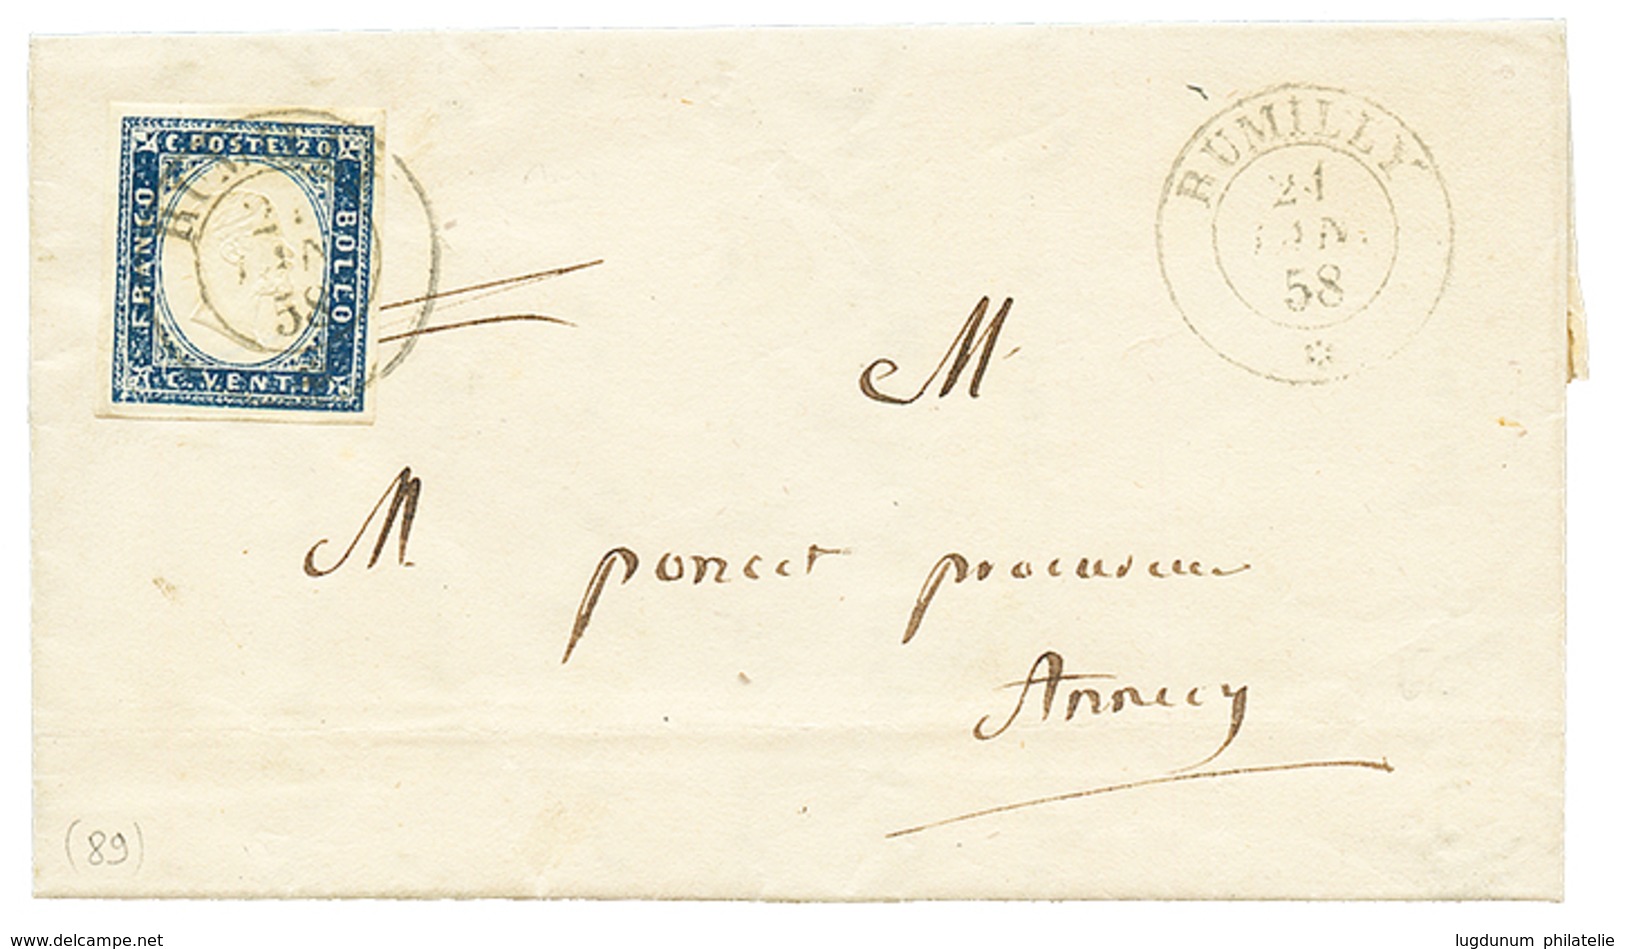 C. POSTE 20
FRANCO
BOLLO
C. VENTI
RUMILLY
21
JAN
58
M
M. poncet procureur
Annecy
(89)
www.delcampe.net
lugdunum philatelie